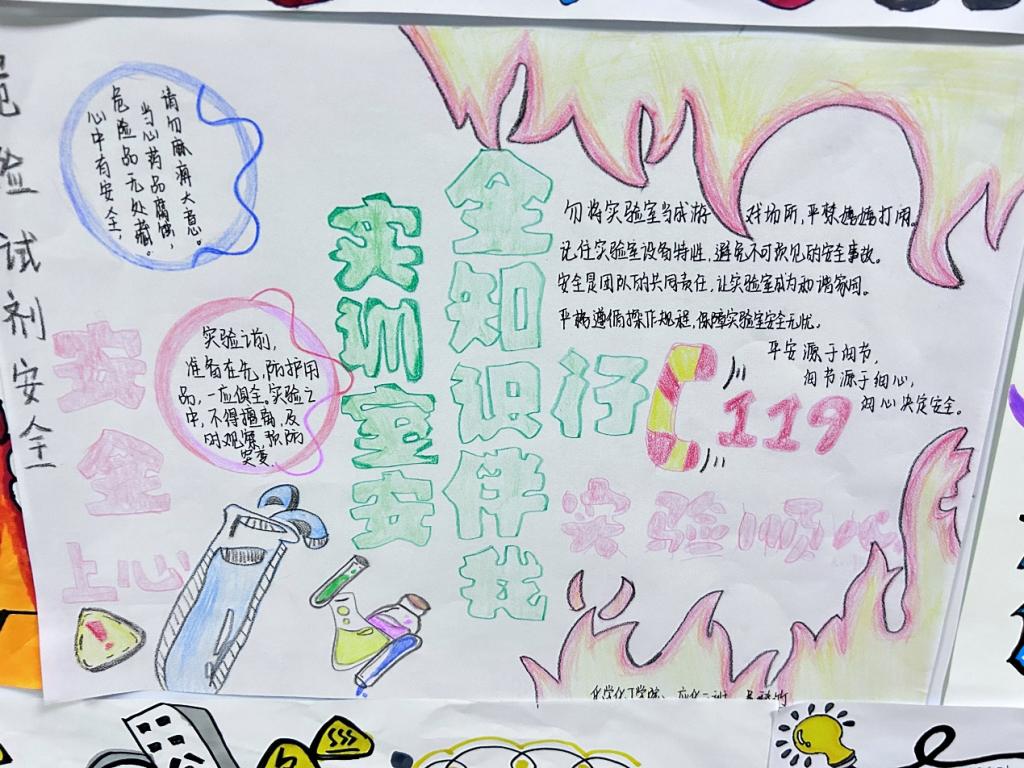 危险试剂安全
请勿麻痹大意。
当心药品腐蚀,
危险品无处藏。
心中有安全,
实验之前,
准备在先,防护用
品,一应俱全。实验之
中,不得擅离,及
时观察,预防
突变.
安全
上心
实训室安
全知识伴我
行
勿将实验室当成游戏场所,严禁嬉嬉打闹。
记住实验室设备特性,避免不可预见的安全事故。
安全是团队的共同责任,让实验室成为和谐家园。
严格遵循操作规程,保障实验室安全无忧。
平安源于细节,
细节源于细心,
细心决定安全。
119
实验顺心
化学化工学院、应化二班